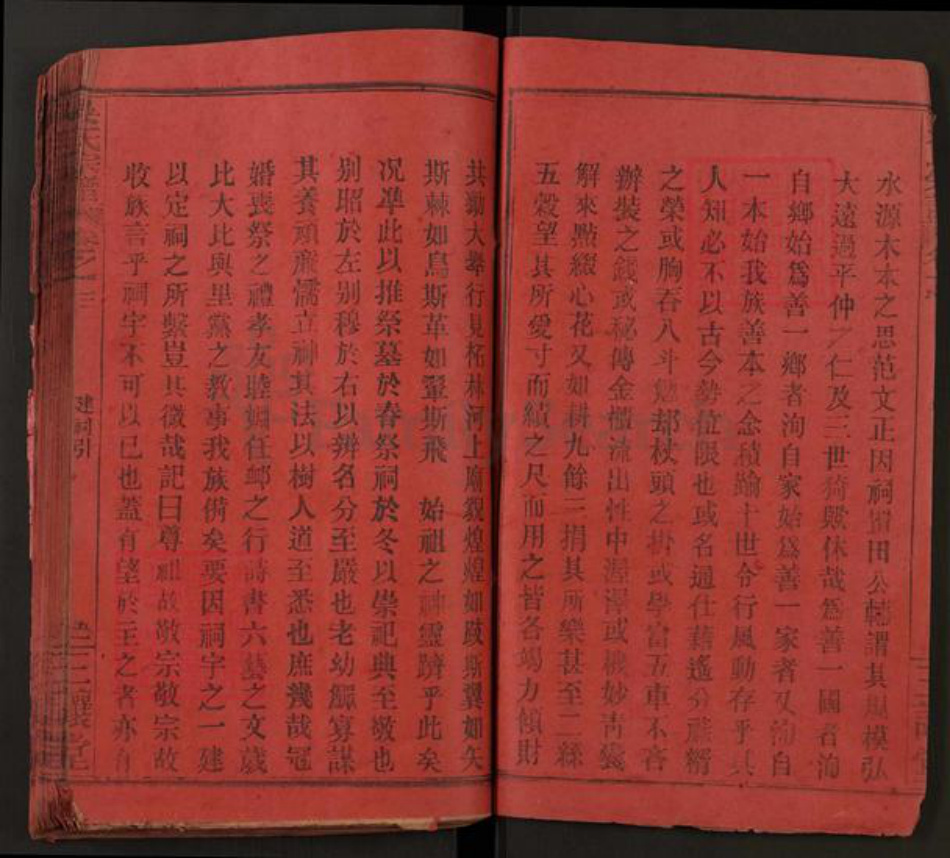 水源木本之思范文正因祠置田公輔謂其規模弘
大遠過平仲之仁及三世猗歟休哉爲善一國者洵
自鄉始爲善一鄉者洵自家始爲善一家者又洵自
一本始我族善本之念積踰十世令行風動存乎其
人知必不以古今勢位限也或名通仕藉遙分蔗糈
之榮或胸吞八斗勉却杖頭之掛或學富五車不吝
辦裝之錢或秘傳金櫃流出性中渥澤或機妙靑囊
解來點綴心花又如耕九餘三捐其所樂甚至二絲
五穀望其所愛寸而績之尺而用之皆各竭力傾財
共勷大舉行見柘林河上廟貌煌煌如跂斯翼如矢
斯棘如鳥斯革如翬斯飛 始祖之神靈躋乎此矣
况準此以推祭墓於春祭祠於冬以崇祀典至敬也
别昭於左别穆於右以辨名分至嚴也老幼鰥寡謀
其養頑廉懦立神其法以樹人道至悉也庶幾哉冠
婚喪祭之禮孝友睦婣任卹之行詩書六藝之文歲
比大比與里黨之教事我族備矣要因祠宇之一建
以定祠之所繫豈其微哉記曰尊祖故敬宗敬宗故
收族言乎祠宇不可以已也蓋有望於主之者亦有
氏宗譜 卷之一
建祠引
三讓堂